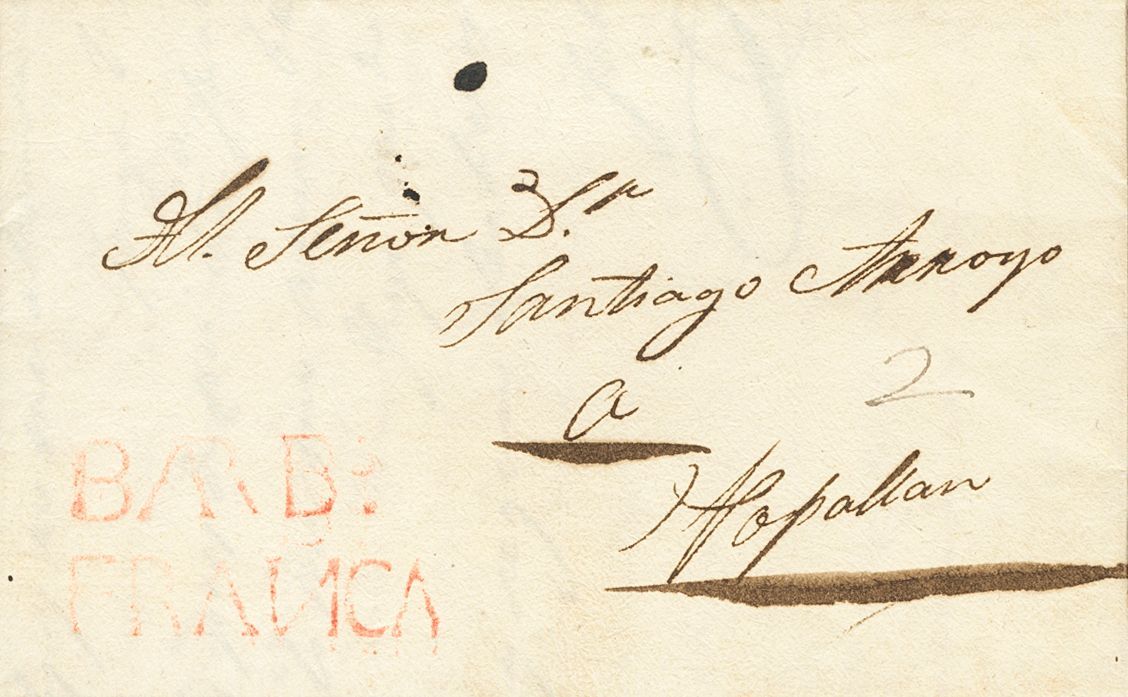 Al. Señor D.r
Santiago Arroyo
a
Popallan
2
BARBs
FRANCA